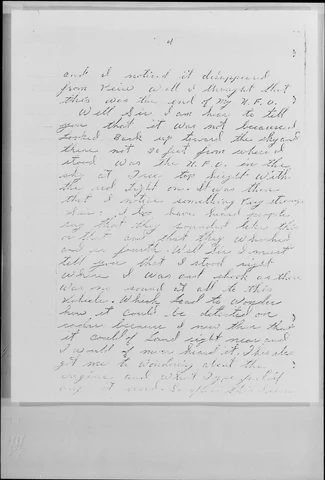 4
and I noticed it disappeared
from veiw Well I thought that
this was the end of My U.F.O.
Well Sir I am hear to tell
you that it was not because I
looked back up toward the sky and
there not so far from where I
stood was the U.F.O. in the
sky at Tree top height With
the red light on. It was then
that I notice something very strange
Sir. I do have heard people
say that they sounded like this
or that and that they whirled
and so fourth. Well Sir I must
tell you that I stood right
where I was and shook as there
was no sound at all to this
Vehicle. Which lead to wonder
how it could be detected on
radar because I now then that
it could of land right near and
I would of never heard it. This also
got me to wondering about the
engine and what type fuel it